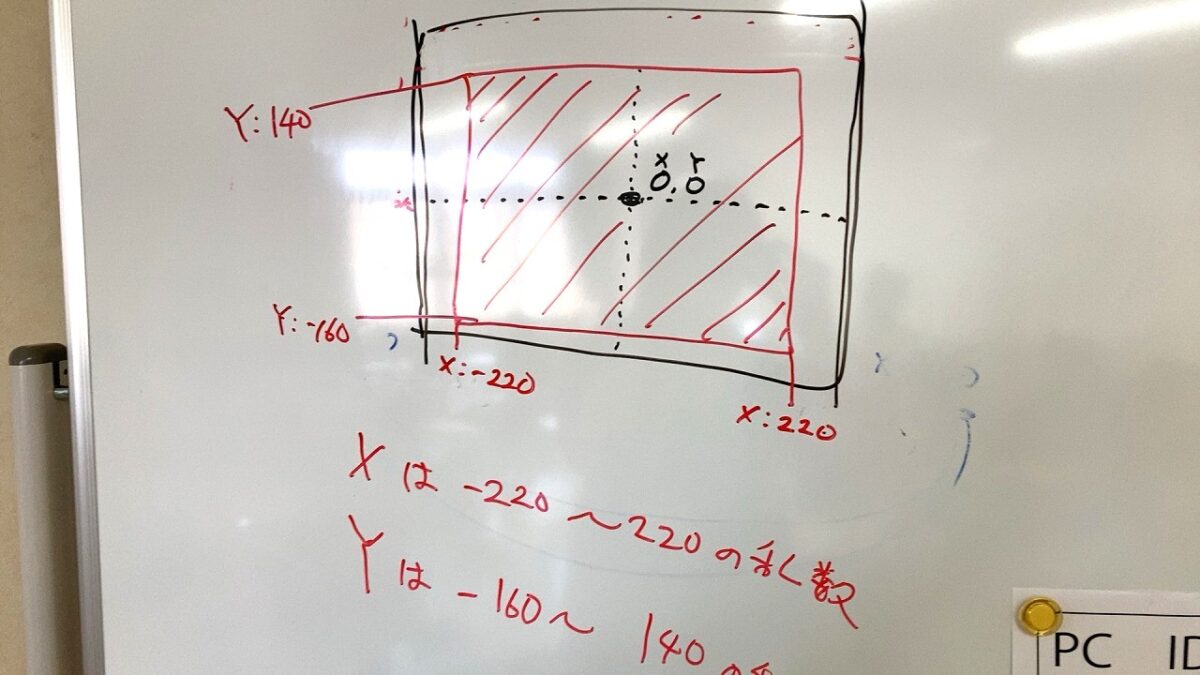 Y:140
X Y
0, 0
Y:-160
X:-220
X:220
Xは -220 〜 220 の乱数
Yは -160〜 140 の
PC ID